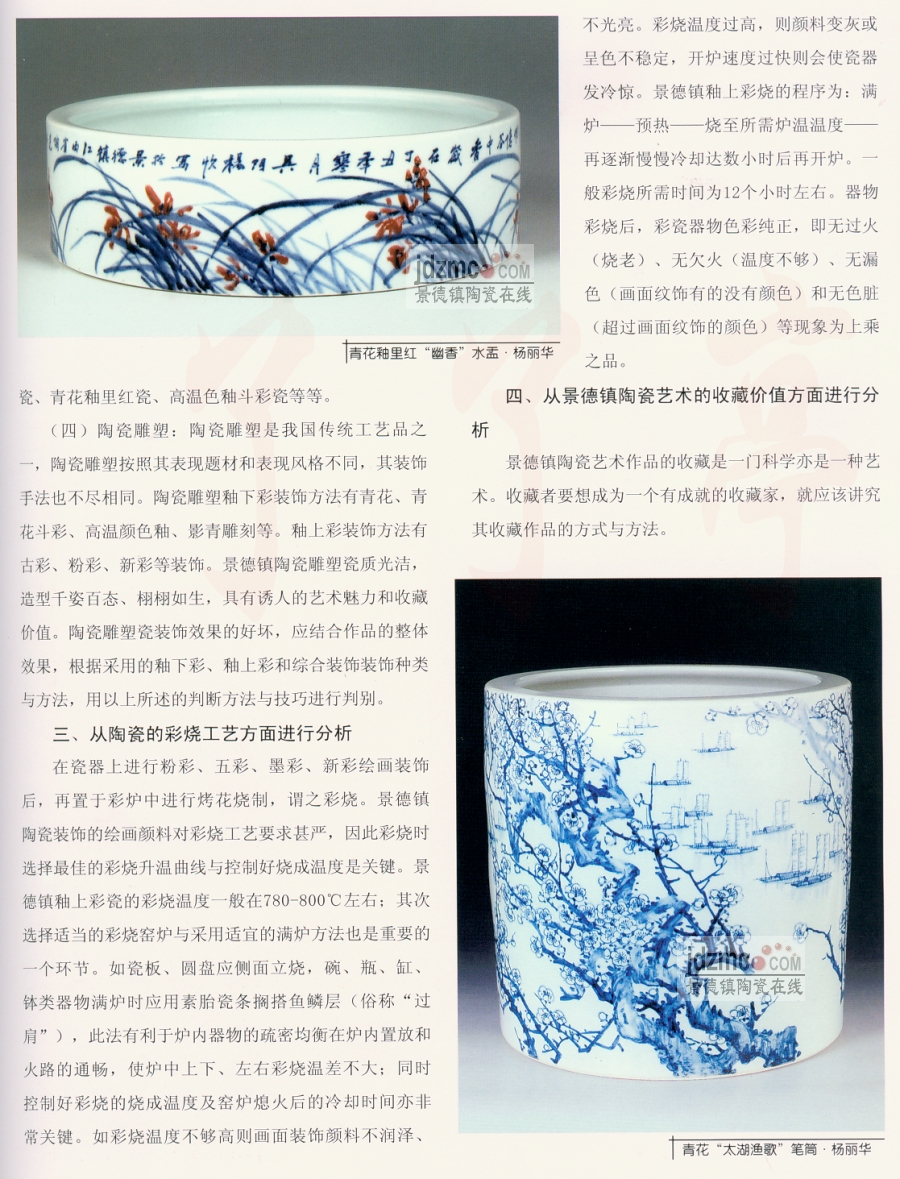 青花釉里红“幽香”水盂·杨丽华
瓷、青花釉里红瓷、高温色釉斗彩瓷等等。
（四）陶瓷雕塑：陶瓷雕塑是我国传统工艺品之
一，陶瓷雕塑按照其表现题材和表现风格不同，其装饰
手法也不尽相同。陶瓷雕塑釉下彩装饰方法有青花、青
花斗彩、高温颜色釉、影青雕刻等。釉上彩装饰方法有
古彩、粉彩、新彩等装饰。景德镇陶瓷雕塑瓷质光洁，
造型千姿百态、栩栩如生，具有诱人的艺术魅力和收藏
价值。陶瓷雕塑瓷装饰效果的好坏，应结合作品的整体
效果，根据采用的釉下彩、釉上彩和综合装饰装饰种类
与方法，用以上所述的判断方法与技巧进行判别。
三、从陶瓷的彩烧工艺方面进行分析
在瓷器上进行粉彩、五彩、墨彩、新彩绘画装饰
后，再置于彩炉中进行烤花烧制，谓之彩烧。景德镇
陶瓷装饰的绘画颜料对彩烧工艺要求甚严，因此彩烧时
选择最佳的彩烧升温曲线与控制好烧成温度是关键。景
德镇釉上彩瓷的彩烧温度一般在780-800℃左右；其次
选择适当的彩烧窑炉与采用适宜的满炉方法也是重要的
一个环节。如瓷板、圆盘应侧面立烧，碗、瓶、缸、
钵类器物满炉时应用素胎瓷条搁搭鱼鳞层（俗称“过
肩”），此法有利于炉内器物的疏密均衡在炉内置放和
火路的通畅，使炉中上下、左右彩烧温差不大；同时
控制好彩烧的烧成温度及窑炉熄火后的冷却时间亦非
常关键。如彩烧温度不够高则画面装饰颜料不润泽、
不光亮。彩烧温度过高，则颜料变灰或
呈色不稳定，开炉速度过快则会使瓷器
发冷惊。景德镇釉上彩烧的程序为：满
炉——预热——烧至所需炉温温度——
再逐渐慢慢冷却达数小时后再开炉。一
般彩烧所需时间为12个小时左右。器物
彩烧后，彩瓷器物色彩纯正，即无过火
（烧老）、无欠火（温度不够）、无漏
色（画面纹饰有的没有颜色）和无色脏
（超过画面纹饰的颜色）等现象为上乘
之品。
四、从景德镇陶瓷艺术的收藏价值方面进行分
析
景德镇陶瓷艺术作品的收藏是一门科学亦是一种艺
术。收藏者要想成为一个有成就的收藏家，就应该讲究
其收藏作品的方式与方法。
青花“太湖渔歌”笔筒·杨丽华
jdzmc.COM
景德镇陶瓷在线
jdzmc.COM
景德镇陶瓷在线